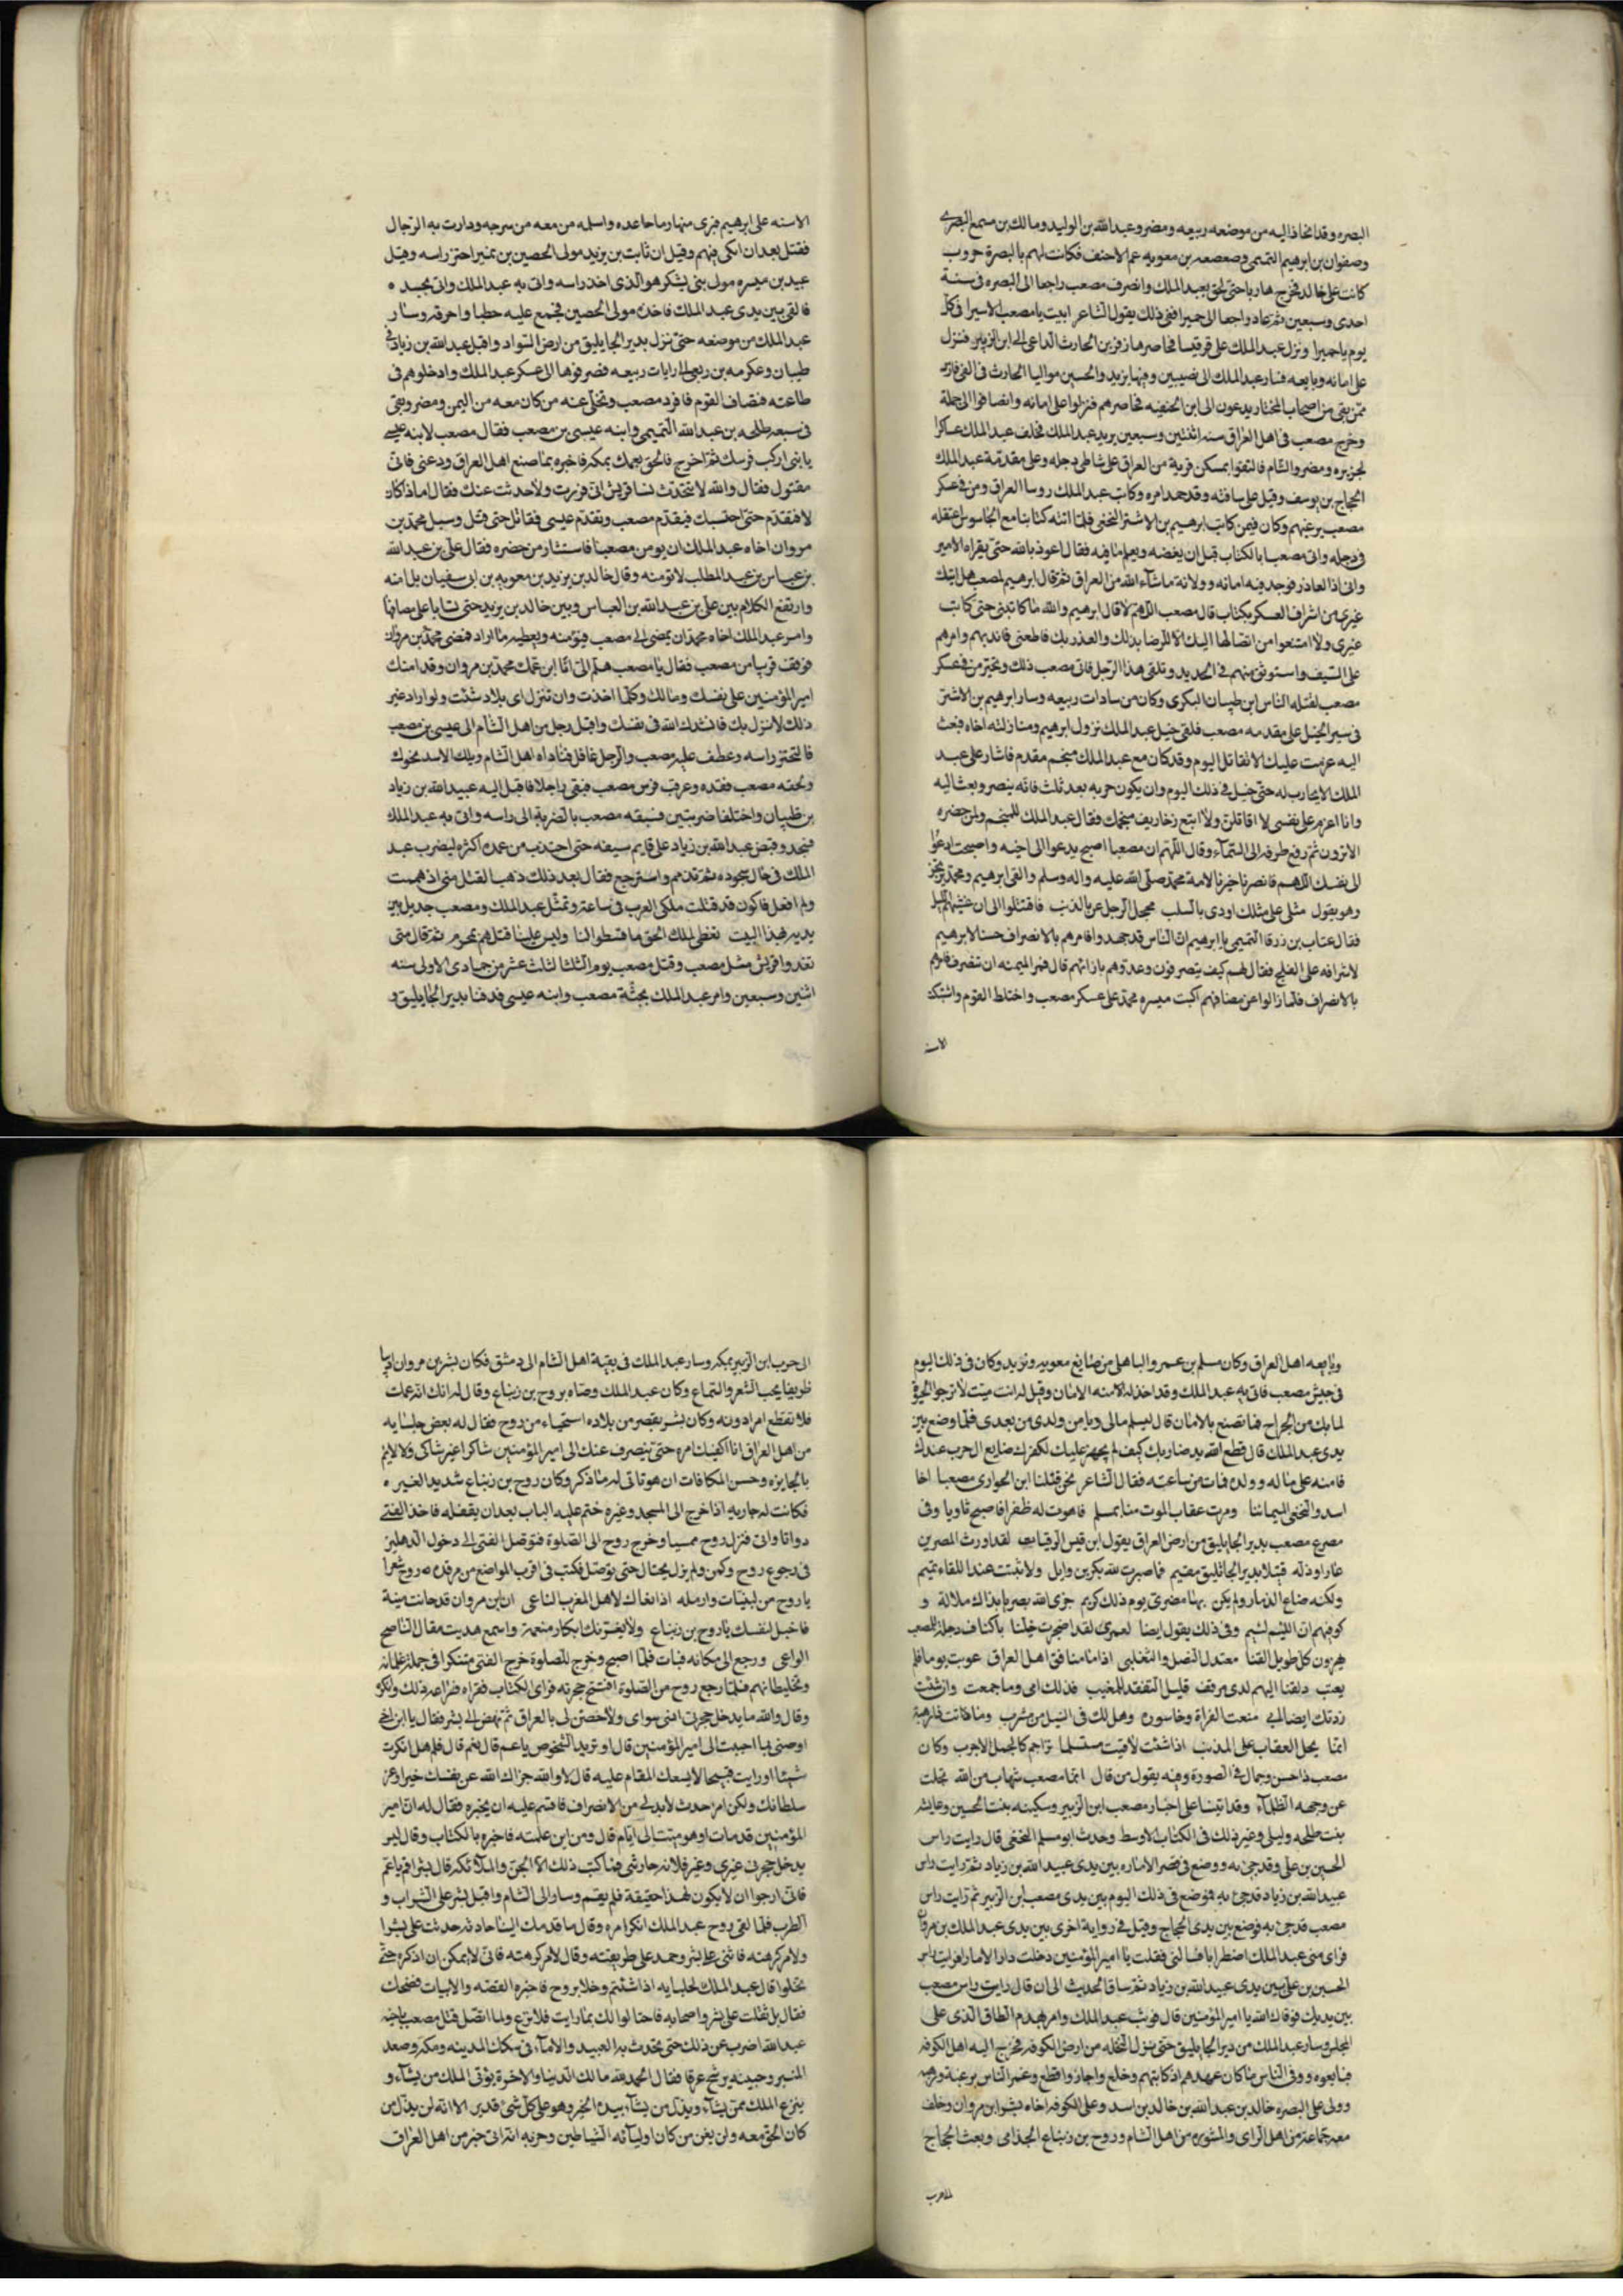 البصره وقد انحاذ اليه من موضعه ربيعه ومضر وعبد الله بن الوليد ومالك بن مسمع البصرى
وصفوان بن ابرهيم التميمى وصعصعه بن معويه عم الاحنف فكانت لهم بالبصرة حروب
كانت على خالد فخرج هاربا حتى لحق بعبد الملك وانصرف مصعب راجعا الى البصره فى سنة
احدى وسبعين ثم عاد راجعا الى حميرا ففى ذلك يقول الشاعر ابيت يا مصعب الا سيرا فى كل
يوم يا حميرا ونزل عبد الملك على قرقيسا فحاصرها زفر بن الحارث الداعى الى ابن الزبير فنزل
على امانه وبايعه فسار عبد الملك الى نصيبين وفيها يزيد والحسين مواليا الحارث فى الفى فارس
ممن بقى من اصحاب المختار يدعون الى ابن الحنفيه فحاصرهم فنزلوا على امانه وانضافوا الى جملة
وخرج مصعب فى اهل العراق سنه اثنتين وسبعين يريد عبد الملك فخلف عبد الملك عساكرا
لجزيره ومضر والشام فالتقوا بمسكن قرية من العراق على شاطى دجله وعلى مقدمة عبد الملك
الحجاج بن يوسف وقيل على ساقته وقد حمد امره وكاتب عبد الملك روسا العراق ومن فى عسكر
مصعب يرغبهم وكان فيمن كاتب ابرهيم بن الاشتر النخعى فلما اتته كتابنا مع الجاسوس اعتقله
فى رحله واتى مصعبا بالكتاب قبل ان يفضه ويعلم ما فيه فقال اعوذ بالله حتى يقراه الامير
واتى اذا العاذر فوجد فيه امانه وولاية ما شاء الله من العراق ثم قال ابرهيم لمصعب هل اتيك
غيرى من اشراف العسكر بكتاب قال مصعب اللهم لا قال ابرهيم والله ما كاتبنى حتى كاتب
غيرى ولا امتنعوا من ايصالها اليك الا للرضا بذلك والغدر بك فاطعنى فابد بهم وامرهم
على السيف واستوثق منهم فى الحديد وتلقى هذا الرجل فابى مصعب ذلك وتخير من فى عسكر
مصعب لقتله الناس ابن ظبيان البكرى وكان من سادات ربيعه وسار ابرهيم بن الاشتر
فى سير الخيل على مقدمه مصعب فلقى خيل عبد الملك نزول ابرهيم ومنازلته اخاه فبعث
اليه عزمت عليك الا تقاتل اليوم وقد كان مع عبد الملك منجم مقدم فاشار على عبد
الملك الا يحارب له حتى خيل فى ذلك اليوم وان يكون حربه بعد ثلث فانه ينصر وبعث اليه
وانا اعزم على نفسى لا اقاتلن ولا اتبع زخاريف منجمك فقال عبد الملك للمنجم ولمن حضره
الا ترون ثم رفع طرفه الى السماء وقال اللهم ان مصعبا اصبح يدعوا الى اخيه واصبحت ادعوا
الى نفسك اللهم فانصرنا خيرنا لامة محمد صلى الله عليه واله وسلم والتقى ابرهيم ومحمد يرتجز
وهو يقول مثلى على مثلك اودى بالسلب محجل الرجل عريا لذنب فاقتتلوا الى ان غشيهم الليل
فقال عتاب بن ورقا التميمى يا ابرهيم ان الناس قد جهدوا فامرهم بالانصراف حسدا لابرهيم
لاشرافه على الفلج فقال لهم كيف ينصرفون وعدوهم بازائهم قال فمر الميمنه ان تنصرف فامرهم
بالانصراف فلما زالوا عن مصافهم اكبت ميسره محمد على عسكر مصعب واختلط القوم واشتبكت
الاسنه
الاسنه على ابرهيم فبرى منها رماحا عده واسلمه من معه من سرجه ودارت به الرجال
فقتل بعد ان انكى فيهم وقيل ان ثابت بن يزيد مولى الحصين بن نمير احتز راسه وقيل
عبيد بن ميسره مولى بنى يشكر هو الذى اخذ راسه واتى به عبد الملك واتى بجسده
فالقى بين يدى عبد الملك فاخذه مولى الحصين فجمع عليه حطبا واحرقه وسار
عبد الملك من موضعه حتى نزل بدير الجاثليق من ارض السواد واقبل عبد الله بن زياد فى
ظبيان وعكرمه بن ربعى الى رايات ربيعه فصرفوها الى عسكر عبد الملك وادخلوهم فى
طاعته فتصاف القوم فافرد مصعب وتخلى عنه من كان معه من اليمن ومضر وبقى
فى سبعه طلحه بن عبد الله التميمى وابنه عيسى بن مصعب فقال مصعب لابنه عيسى
يا بنى اركب فرسك ثم اخرج فالحق بعمك بمكه فاخبره بما صنع اهل العراق ودعنى فانى
مقتول فقال والله لا تتحدث نسا قريش انى فررت ولا حدثت عنك فقال اما اذا كان
لا فتقدم حتى احتسبك فتقدم مصعب وتقدم عيسى فقاتل حتى قتل وسيل محمد بن
مروان اخاه عبد الملك ان يومن مصعبا فاستشار من حضره فقال على بن عبد الله
بن عباس بن عبد المطلب لا تومنه وقال خالد بن يزيد بن معويه بن ابى سفيان بل امنه
وارتفع الكلام بين على بن عبد الله بن العباس وبين خالد بن يزيد حتى تسابا على مصافهما
وامر عبد الملك اخاه محمد ان يمضى الى مصعب فيؤمنه ويعطيه ما اراد فمضى محمد بن مروان
فوقف قريبا من مصعب فقال يا مصعب هلم الى انا ابن عمك محمد بن مروان وقد امنك
امير المؤمنين على نفسك ومالك وكلما اخذت وان تنزل اى بلاد شئت ولو اراد غير
ذلك لانزل بك فانشدك الله فى نفسك واقبل رجل من اهل الشام الى عيسى بن مصعب
فالتحتز راسه وعطف عليه مصعب والرجل غافل فناداه اهل الشام ويلك الاسد نحوك
ولحقه مصعب فقده وعرقب فرس مصعب فبقى راجلا فاقبل اليه عبيد الله بن زياد
بن ظبيان واختلفا ضربتين فسبقه مصعب بالضربة الى راسه واتى به عبد الملك
فسجد وقبض عبيد الله بن زياد على قايم سيفه حتى اجتذب من غمده اكثره ليضرب عبد
الملك فى حال سجوده ثم تندم واسترجع فقال بعد ذلك ذهب القتل منى اذ هممت
ولم افعل فاكون قد قتلت ملكى العرب فى ساعة وتمثل عبد الملك ومصعب جديل بين
يديه بهذا البيت نعطى الملك الحق ما قسطوا لنا وليس علينا قتلهم بمحرم ثم قال متى
تغدوا قريش مثل مصعب وقتل مصعب يوم الثلثا لثلث عشر من جمادى الاولى سنه
اثنين وسبعين وامر عبد الملك بجثة مصعب وابنه عيسى فدفنا بدير الجاثليق و
وبايعه اهل العراق وكان مسلم بن عمرو الباهلى من صنايع معويه ويزيد وكان فى ذلك اليوم
فى جيش مصعب فاتى به عبد الملك وقد اخذ له الامنه الامان وقيل له انت ميت لا ترجوا الحيوة
لما بك من الجراح فما تصنع بالامان قال ليسلم مالى ويامن ولدى من بعدى فلما وضع بين
يدى عبد الملك قال قطع الله يد ضاربك كيف لم يجهز عليك لكفرك صنايع ال حرب عندك
فامنه على ماله وولده فمات من ساعته فقال الشاعر نحن قتلنا ابن الحوارى مصعبا اخا
اسد والنخعى اليمانيا ومرت عقاب الموت منا بمسلم فاهوت له ظفرا فاصبح ثاويا وفى
مصرع مصعب بدير الجاثليق من ارض العراق يقول ابن قيس الرقيات لقد اورث المصرين
عارا وذله قتيلا بدير الجاثليق مقيم فما صبرت لله بكر بن وايل ولا ثبتت عند اللقاء تميم
ولكنه ضاع الذمار ولم يكن بها مضرى يوم ذلك كريم جزى الله بصريا بذاك ملالة و
كوفيهم ان اللئيم لئيم وفى ذلك يقول ايضا لعمرى لقد اضجرت خيلنا باكناف دجلة للمصعب
يهزون كل طويل القنا معتدل النصل والثعلبى اذا ما منافق اهل العراق عوتب يوما فلم
يعتب دلفنا اليهم لدى موقف قليل التفقد للمغيب فذلك امى وما جمعت وان شئت
زدتك ايضا لابى
انما يحل العقاب على المذنب اذا شئت لاقيت مستسلما تزاحم كالجمل الاجرب وكان
مصعب ذا حسن وجمال فى الصورة وفيه يقول من قال انما مصعب شهاب من الله تجلت
عن وجهه الظلماء وقد اتينا على اخبار مصعب ابن الزبير وسكينه بنت الحسين وعايشه
بنت طلحه وليلى وغير ذلك فى الكتاب الاوسط وحدث ابو مسلم النخعى قال رايت راس
الحسين بن على وقد جئ به ووضع فى قصر الاماره بين يدى عبيد الله بن زياد ثم رايت راس
عبيد الله بن زياد قد جئ به فوضع فى ذلك اليوم بين يدى مصعب ابن الزبير ثم رايت راس
مصعب قد جئ به فوضع بين يدى الحجاج وقيل فى رواية اخرى بين يدى عبد الملك بن مروان
فراى منى عبد الملك اضطرابا فسالنى فقلت يا امير المؤمنين دخلت دار الاماره فرايت راس
الحسين بن على بين يدى عبيد الله بن زياد ثم ساق الحديث الى ان قال رايت راس مصعب
بين يديك فوقاك الله يا امير المؤمنين قال فوثب عبد الملك وامر بهدم الطاق الذى على
المجلس وسار عبد الملك من دير الجاثليق حتى نزل النخله من ارض الكوفه فخرج اليه اهل الكوفه
فبايعوه ووفى الناس ما كان عهدهم اذ كاتبهم وخلع واجاز واقطع وعم الناس برغبة ورهبه
وولى على البصره خالد بن عبد الله بن خالد بن اسد وعلى الكوفه اخاه بشر ابن مروان وخلف
معه جماعة من اهل الراى والمشوره من اهل الشام وروح بن زنباع الجذامى وبعث الحجاج
الى حرب ابن الزبير بمكه وسار عبد الملك فى بقية اهل الشام الى دمشق فكان بشر بن مروان اديبا
ظريفا يحب الشعر والسماع وكان عبد الملك وصاه بروح بن زنباع وقال له انك انه عمك
فلا تقطع امرا دونه وكان بشر يقصر من بلاده استحياء من روح فقال له بعض جلسايه
من اهل العراق انا اكفيك امره حتى ينصرف عنك الى امير المؤمنين شاكرا غير شاكى ولا لايم
بالجايزه وحسن المكافات ان هو تاتى له ما ذكر وكان روح بن زنباع شديد الغيره
فكانت له جاريه اذا خرج الى المسجد وغيره ختم عليه الباب بعد ان يقفله فاخذ الفتى
دواتا واتى منزل روح ممسيا وخرج روح الى الصلوة فتوصل الفتى الى دخول الدهليز
فى رجوع روح وكمن ولم يزل يحتال حتى توصل فكتب فى اقرب المواضع من مرقده روح شعرا
يا روح من لبنيات وارمله اذا نعاك لاهل المغرب الناعى ان ابن مروان قد حانت منيته
فاحتل لنفسك يا روح بن زنباع ولا يغرنك ابكار منعمة واسمع هديت مقال الناصح
الواعى ورجع الى مكانه فبات فلما اصبح وخرج للصلوة خرج الفتى متنكرا فى جملة غلمانه
وتخليطا بهم فلما رجع روح من الصلوة افتتح حجرته فراى الكتاب فقراه فراعه ذلك وانكره
وقال والله ما يدخل حجرتى انسى سواى ولا حصن لى بالعراق ثم نهض الى بشر فقال يا ابن اخى
اوصنى بما احببت الى امير المؤمنين قال او تريد الشخوص يا عم قال نعم قال فلم هل انكرت
شيئا او رايت قبيحا لا يسعك المقام عليه قال لا والله جزاك الله عن نفسك خيرا وعن
سلطانك ولكن امر احدث لا بد لى من الانصراف فاقسم عليه ان يخبره فقال له ان امير
المؤمنين قد مات او هو ميت الى ايام قال ومن اين علمته فاخبره بالكتاب وقال ليس
يدخل حجرتى غيرى وغير فلانه جاريتى فما كتب ذلك الا الجن والملائكه قال بشر اقم يا عم
فانى ارجوا ان لا يكون لهذا حقيقة فلم يقم وسار الى الشام واقبل بشر على الشراب و
الطرب فلما لقى روح عبد الملك انكر امره وقال ما قدمك الينا حادثه حدثت على بشر ا
ولامر كرهته فاثنى على بشر وحمد على طريقته وقال لامر كرهته فانى لا يمكن ان اذكره حتى
تخلوا قال عبد الملك لجلسايه اذا شئتم وخلا بروح فاخبره القصه والابيات فضحك
فقال بل ثقلت على بشر واصحابه فاحتالوا لك بما رايت فلا ترع ولما اتصل قتل مصعب باخيه
عبد الله اضرب عن ذلك حتى يتحدث به العبيد والاماء فى سكك المدينه ومكه وصعد
المنبر وجبينه يرشح عرقا فقال الحمد لله مالك الدنيا والاخرة يؤتى الملك من يشاء و
ينزع الملك ممن يشاء ويذل من يشاء بيده الخير وهو على كل شئ قدير الا انه لن يذل من
كان الحق معه ولن يعز من كان اوليائه الشياطين وحزبه اتانى خبر من اهل العراق